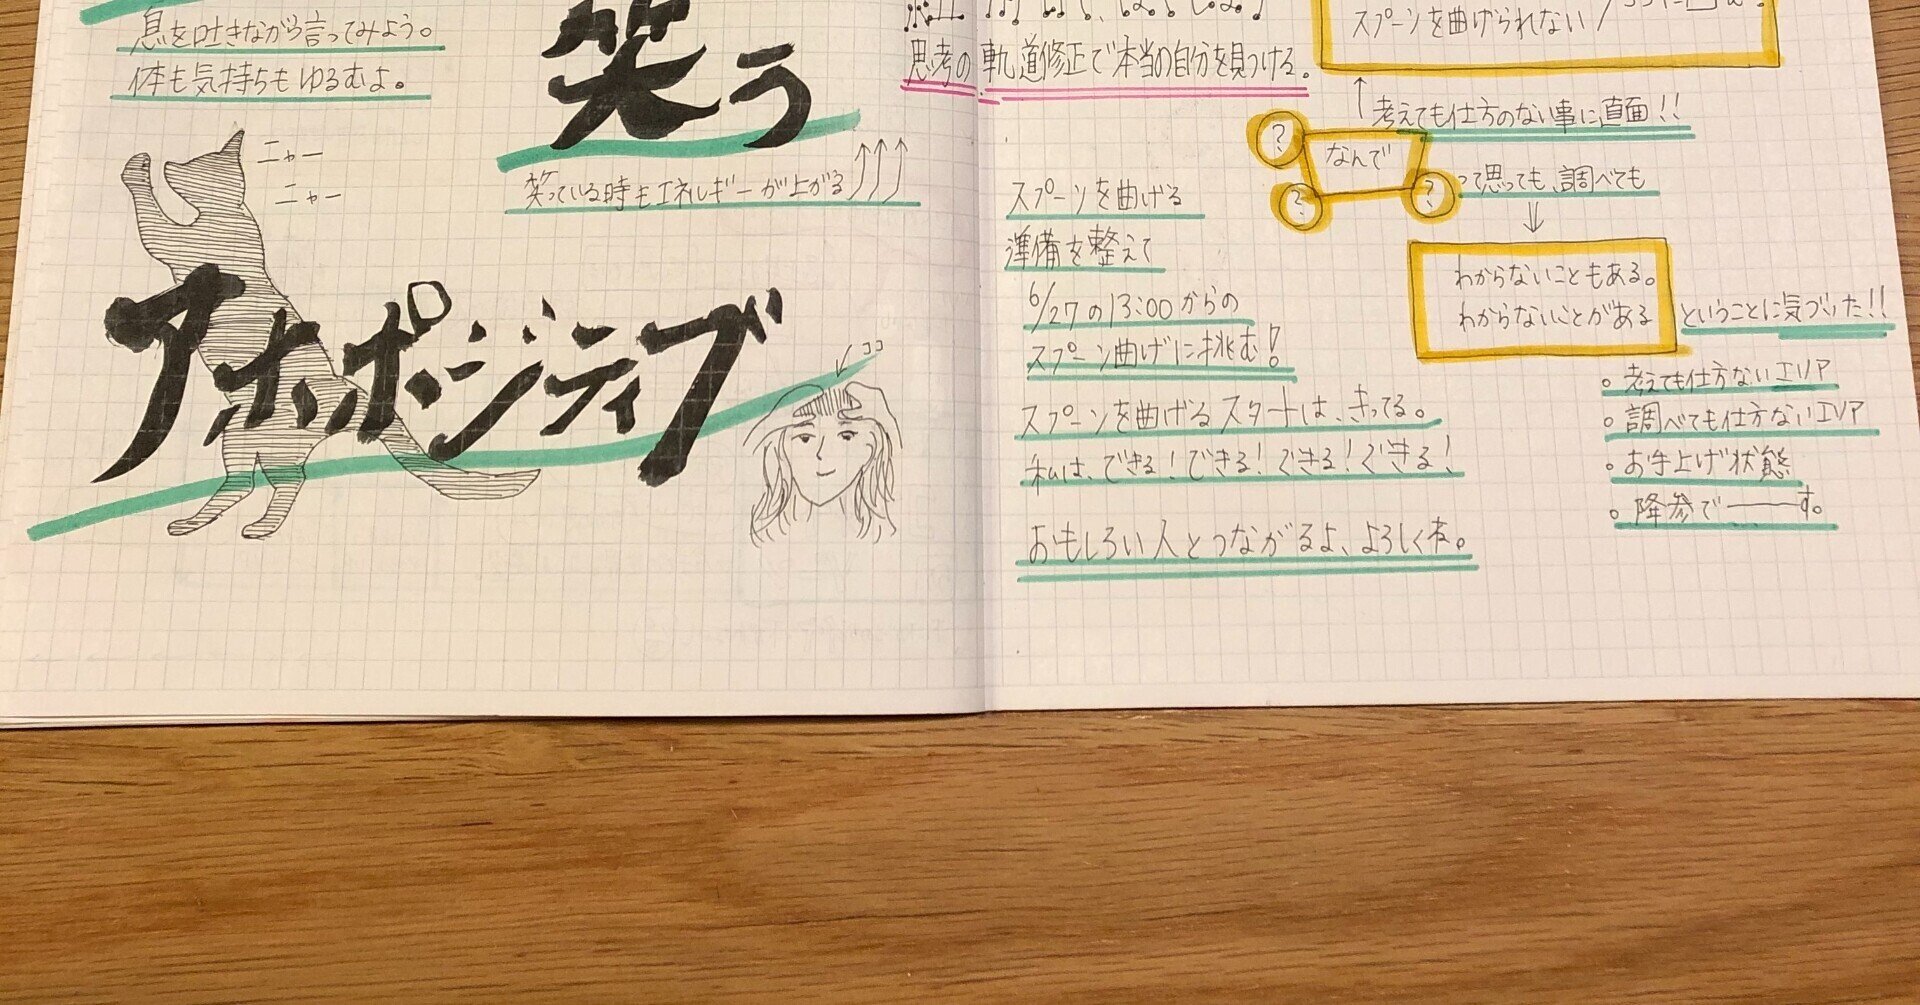 息を吐きながら言ってみよう。
体も気持ちもゆるむよ。
笑う
笑っている時もエネルギーが上がる
ニャー
ニャー
アホポジティブ
ココ
思考の軌道修正で本当の自分を見つける。
スプーンを曲げられない
考えても仕方のない事に直面!!
?
なんで
?
?
って思っても、調べても
わからないこともある。
わからないことがある
ということに気づいた!!
スプーンを曲げる
準備を整えて
6/27の13:00からの
スプーン曲げに挑む!
スプーンを曲げるスタートは、きってる。
私は、できる!できる!できる!できる!
おもしろい人とつながるよ、よろしくね。
。考えても仕方ないエリア
。調べても仕方ないエリア
。お手上げ状態
。降参で――す。